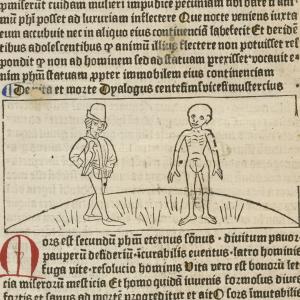 pmiserūt cuidam mulieri impudice pecuniam
mū phī posset ad luxuriam inflectere Que nocte veniens iuxta
eum accubuit nec in aliquo eius continēciā labefecit Et deridēn
tibus adolescentibus ꝙ animū illius flectere non potuisset res
pondit ꝙ non ad hominem sed ad statuam prexisset vocauit e
nim phm̄ statuam ꝓpter immobilem eius continenciam
De vita et morte Dyalogus centesimusvicesimustercius
Mors est secundū phm̄ eternus sōnus · diuitum pauor
pauperū desideriū · īcurabilis euentus · latro hominis
fuga vite · resolucio hominis Vita vero est bonorū
cia miserorum mesticia Et homo quidā iuuenis formosus
fortis et sanus ad mortē progreditur et ait O mors